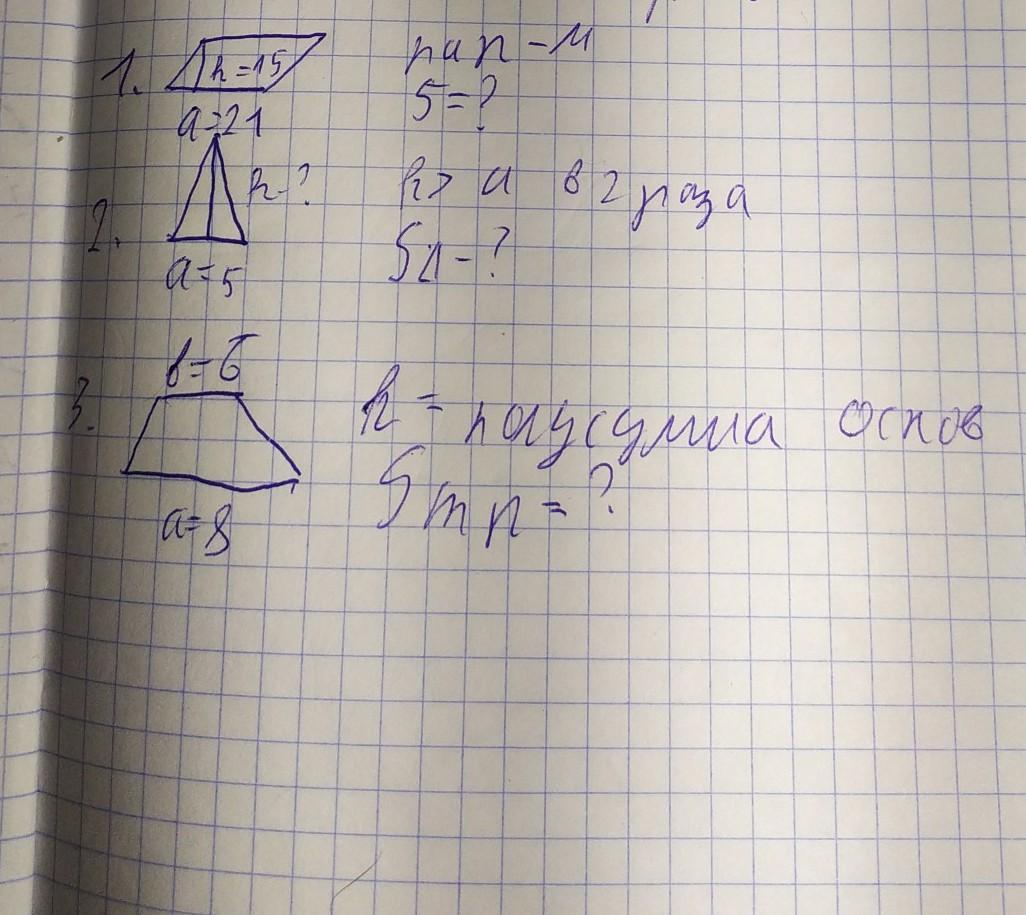 1. h=15 пар-м
a=21 S=?
2. h-? h> a в 2 раза
a=5 SΔ-?
3. b=6 h = полусумма основ
a=8 Sтр=?